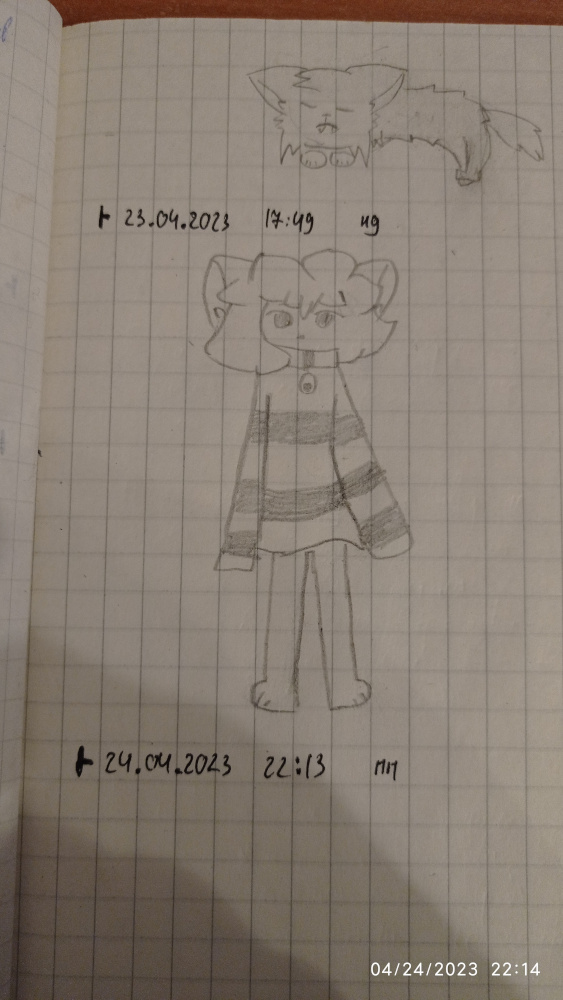 23.04.2023 17:49 нд
24.04.2023 22:13 пп
04/24/2023 22:14